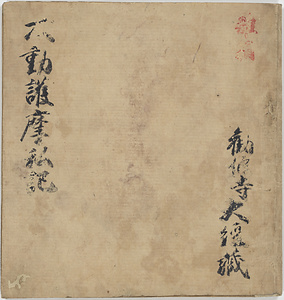 勧修寺大経蔵
不動護摩私記